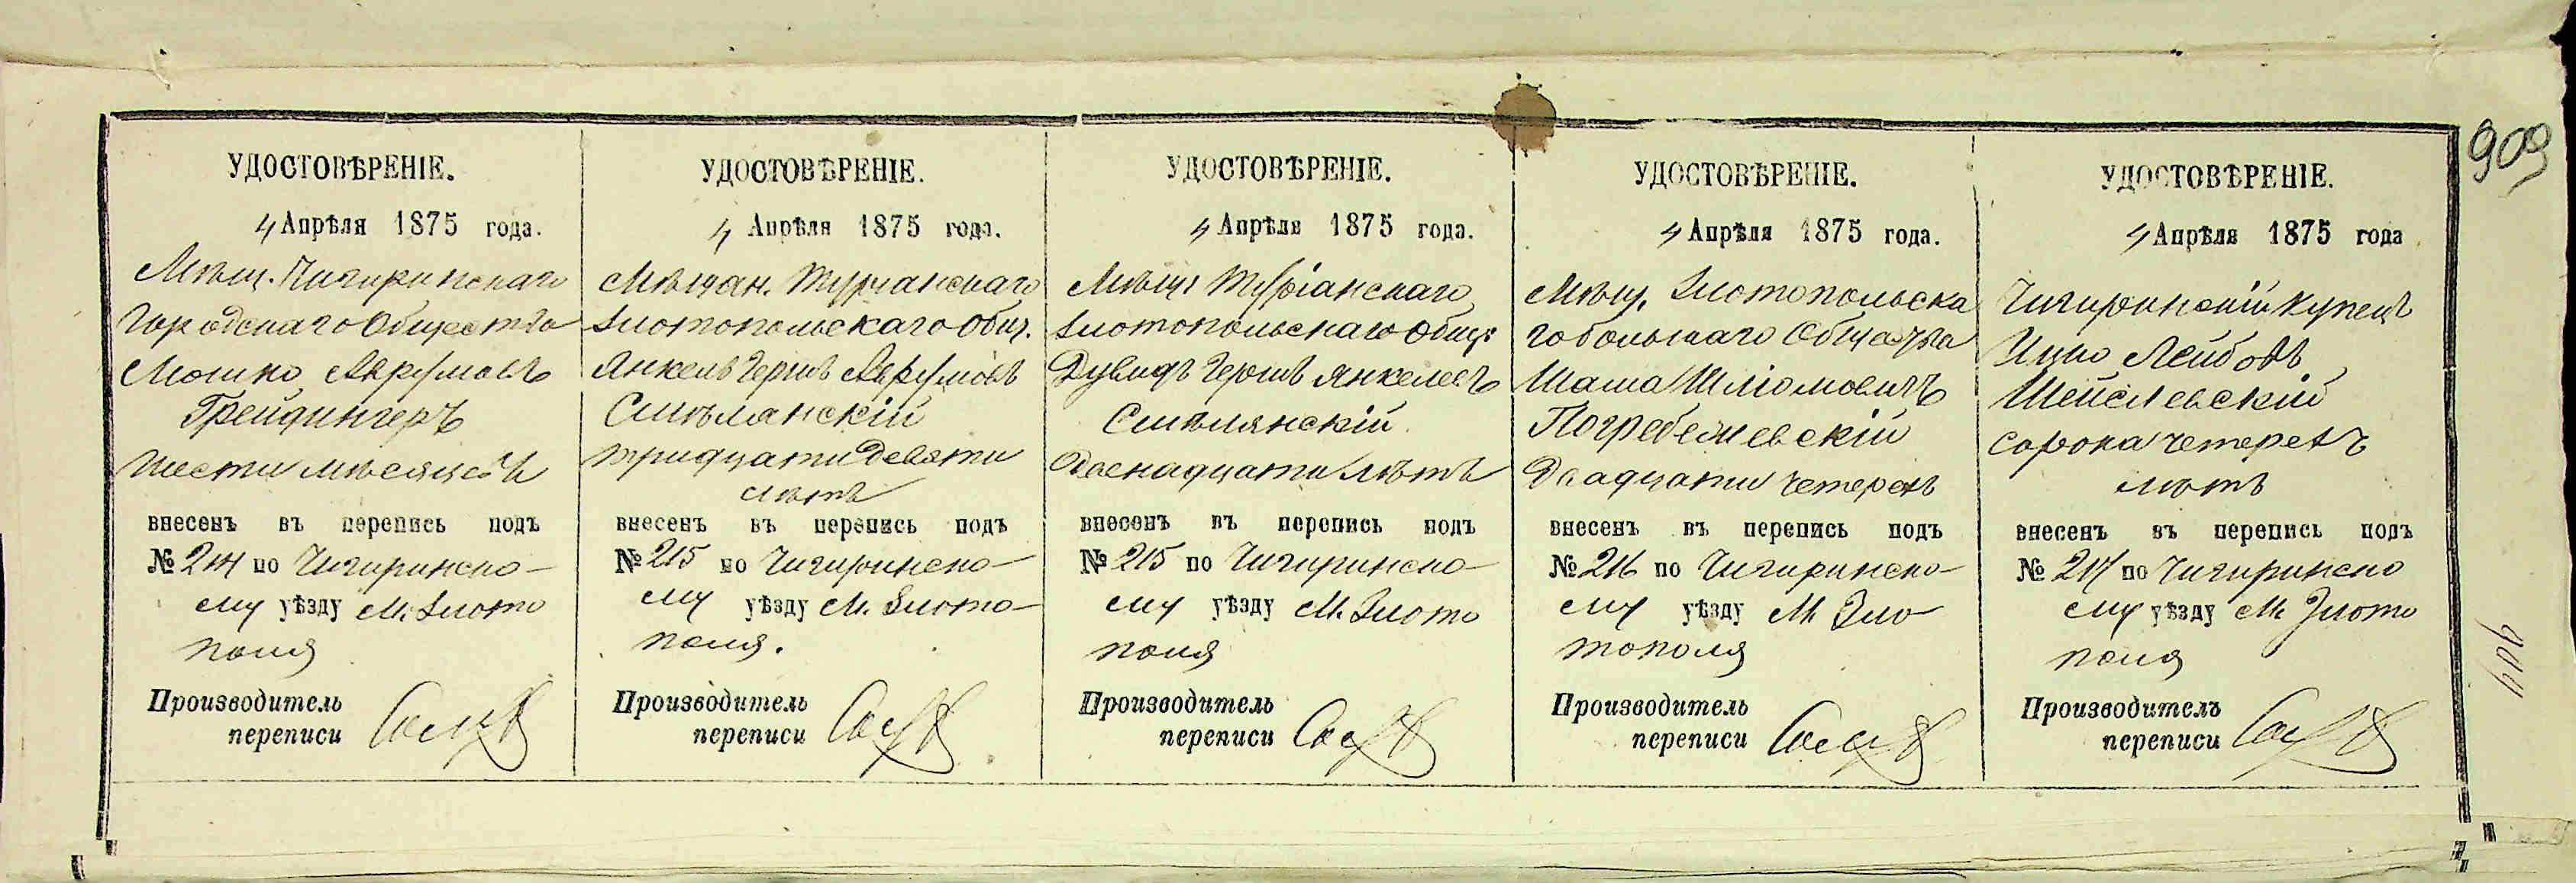 909
УДОСТОВѢРЕНІЕ.
4 Апрѣля 1875 года.
Мѣщ. Чигиринскаго
Городскаго Общества
Мошко Аврумовъ
Грейдингеръ
шести мѣсяцевъ
внесенъ въ перепись подъ
№ 214 по Чигиринско-
му уѣзду М. Злото
поля
Производитель
переписи
УДОСТОВѢРЕНІЕ.
4 Апрѣля 1875 года.
Мѣщан. Туріанскаго
Злотопольскаго Общ.
Янкель Гершъ Аврумовъ
Смѣлянскій
тридцати девяти
лѣтъ
внесенъ въ перепись подъ
№ 215 по Чигиринско-
му уѣзду М. Злото-
поля.
Производитель
переписи
УДОСТОВѢРЕНІЕ.
4 Апрѣля 1875 года.
Мѣщ: Туріанскаго
Злотопольскаго Общ:
Дувидъ Гершъ Янкелевъ
Смѣлянскій
двенадцати лѣтъ
внесенъ въ перепись подъ
№ 215 по Чигиринско-
му уѣзду М. Злото
поля
Производитель
переписи
УДОСТОВѢРЕНІЕ.
4 Апрѣля 1875 года.
Мѣщ. Злотопольска
го большаго Общества
Шлюмовичъ
Погребечевскій
Двадцати четерехъ
внесенъ въ перепись подъ
№ 216 по Чигиринско-
му уѣзду М. Зло-
тополя
Производитель
переписи
УДОСТОВѢРЕНІЕ.
4 Апрѣля 1875 года
Чигиринскій купецъ
Ицко Лейбовъ
сорока четерехъ
лѣтъ
внесенъ въ перепись подъ
№ 217 по Чигиринско
му уѣзду М. Злото
поля
Производитель
переписи
904